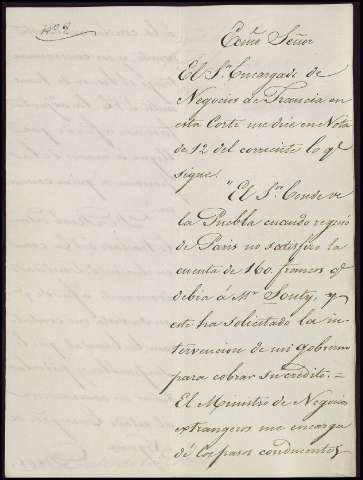 Nº 2
Exmo Señor
El Sr. Encargado de
Negocios de Francia en
esta Corte me dice en Nota
de 12 del corriente lo qe
sigue:
"El Sr. Conde de
la Puebla cuando regresó
de Paris no satisfizo la
cuenta de 160. francos qe
debia á Mr Souty, y
este ha solicitado la in-
tervencion de mi gobierno
para cobrar su credito. =
El Ministro de Negocios
extrangeros me encarga
dé los pasos conducentes